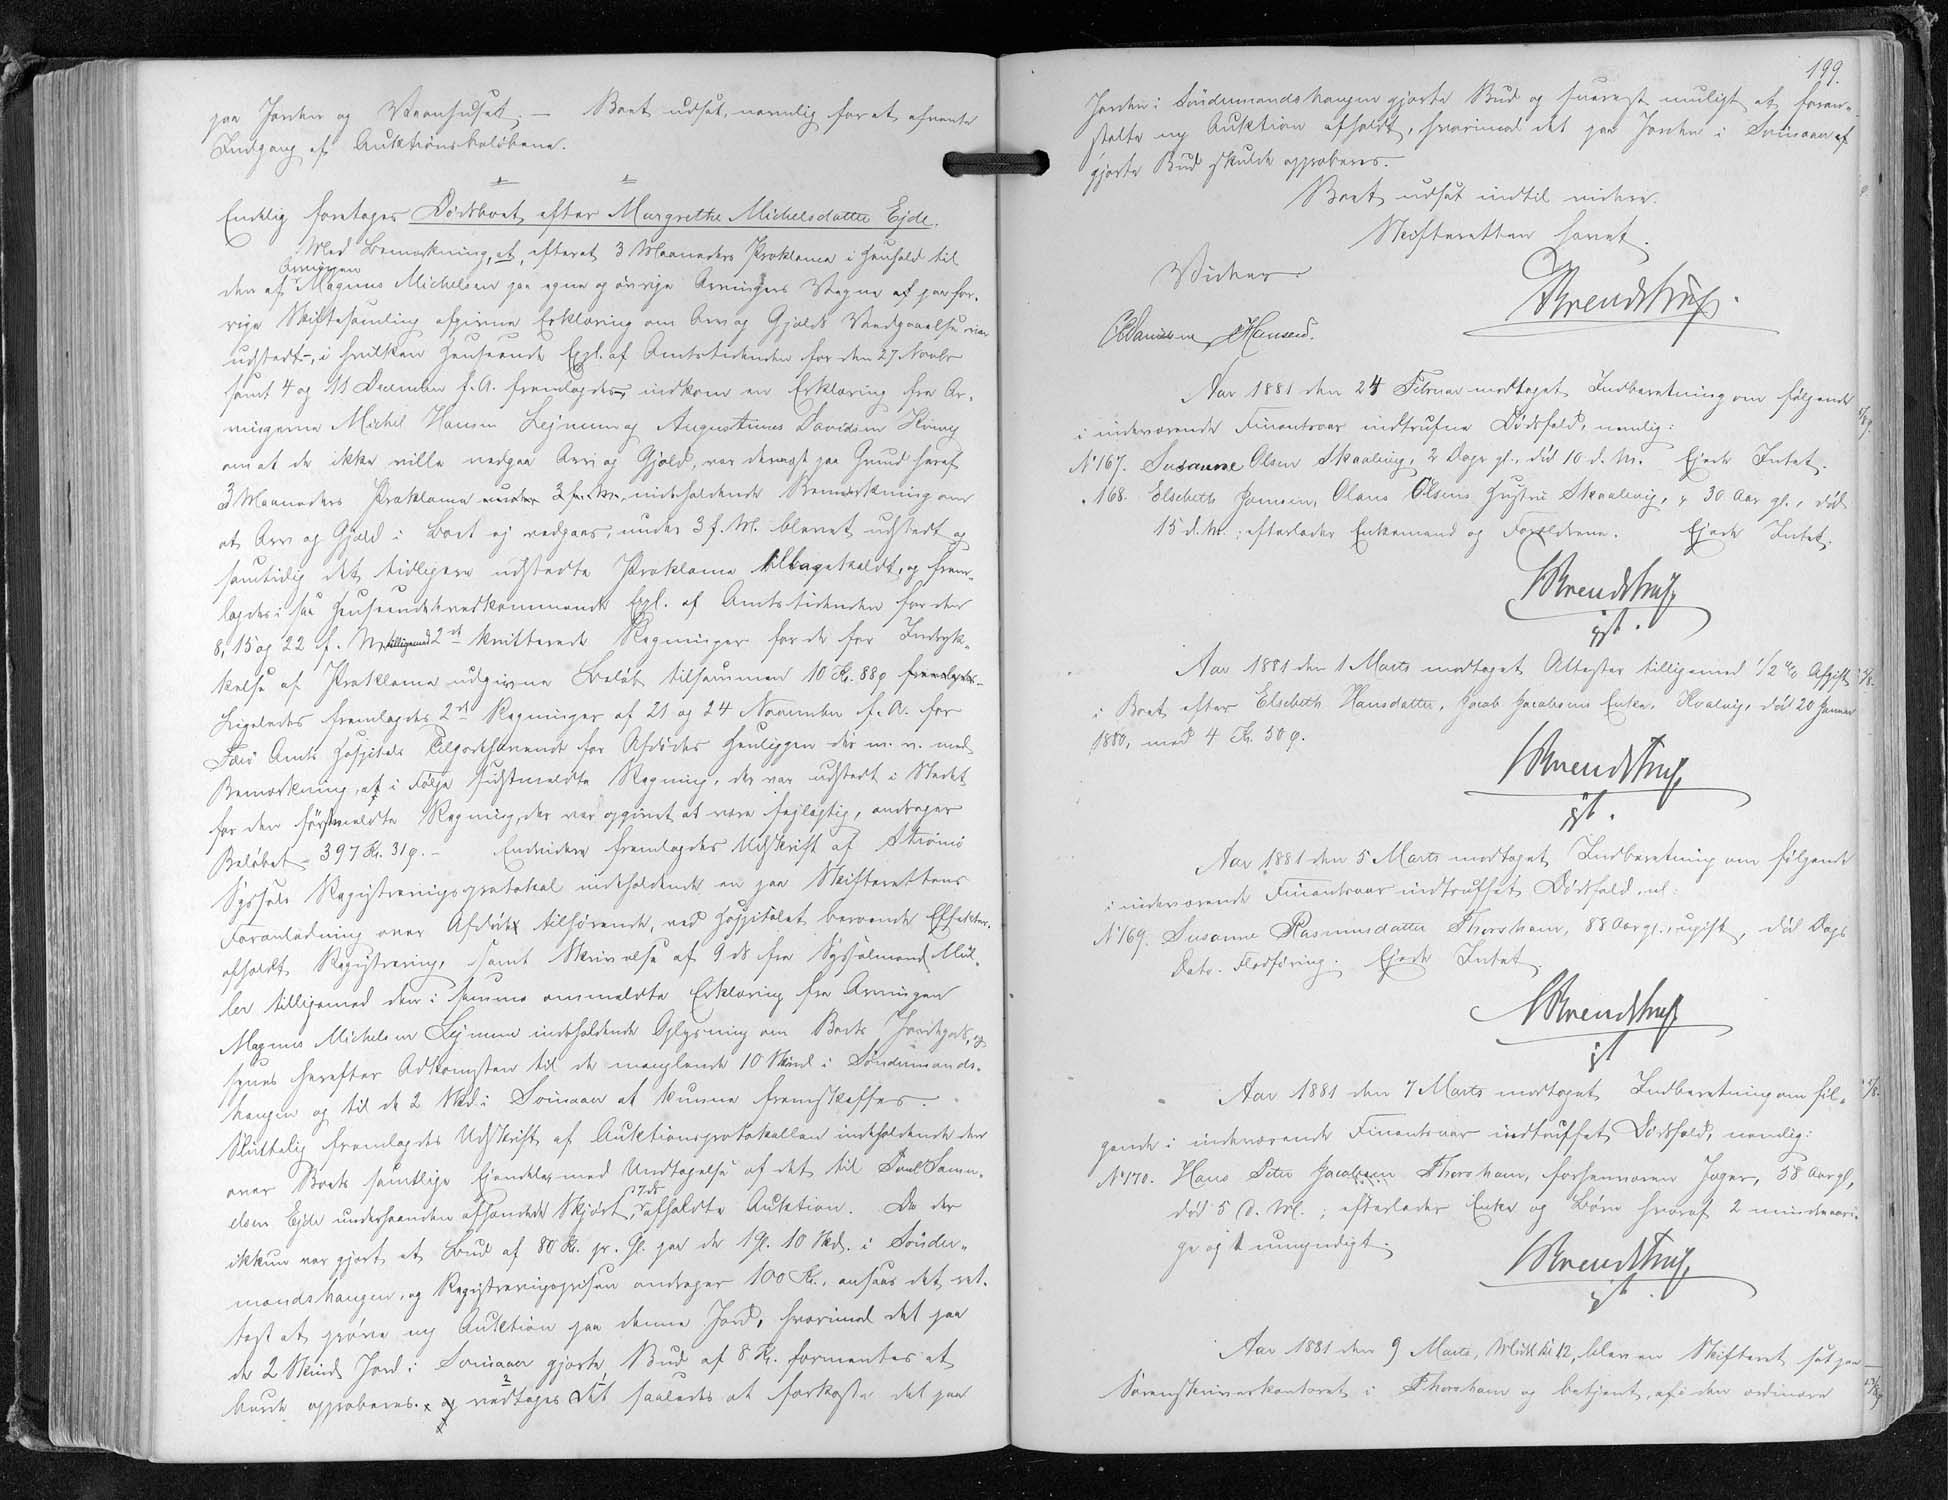 paa Jorden og Vaanhuset. — Boet udsat, navnlig for at afvente
Indgang af Auktionsbeløbene.
Endelig foretoges Dødsboet efter Margrethe Michelsdatter Ejde.
Med Bemærkning, at, efterat 3 Maaneders Proklama i Henhold til
den af Arvingen Magnus Michelsen paa egne og øvrige Arvingers Vegne af paa for-
rige Skiftesamling afgivne Erklæring om Arv og Gjælds Vedgaaelse var
udstedt, i hvilken Henseende Expl. af Amtstidenden for den 27 Novbr
samt 4 og 11 December f. A. fremlagdes, indkom en Erklæring fra Ar-
vingerne Michel Hansen Lejnum og Augustinus Davidsen Hvivig
om at de ikke ville vedgaa Arv og Gjæld, var dernæst paa Grund heraf
3 Maaneders Proklama under 3 f. M. indeholdende Bemærkning om
at Arv og Gjæld i Boet ej vedgaas, under 3 f. M. blevet udstedt og
samtidig det tidligere udstedte Proklama tilbagekaldt, og frem-
lagdes i saa Henseende vedkommende Expl. af Amtstidenden for den
8, 15 og 22 f. M. tilligemed 2de kvitterede Regninger for de for Indryk-
kelse af Proklama udgivne Beløb tilsammen 10 Kr. 88 ø fremlagdes
Ligeledes fremlagdes 2de Regninger af 21 og 24 November f. A. for
Færø Amts Hospitals Tilgodehavende for Afdødes Henliggen der m. v. med
Bemærkning, at i Følge sidstmeldte Regning, der var udstedt i Stedet
for den førstmeldte Regning, der var opgivet at være fejlagtig, androger
Beløbet 397 Kr. 31 ø. — Endvidere fremlagdes Udskrift af Strømø
Syssels Registreringsprotokol indeholdende en paa Skifterettens
Foranledning over Afdødes tilhørende, ved Hospitalet beroende Effekter
afholdt Registrering, samt Skrivelse af 9 ds fra Sysselmand Mül-
ler tilligemed den i samme ommeldte Erklæring fra Arvingen
Magnus Michelsen Lejnum indeholdende Oplysning om Boets Jordegods, og
synes herefter Adkomsten til de manglende 10 Skind i Søndermands-
haugen og til de 2 Skd. i Soinaaer at kunne fremskaffes.
Sluttelig fremlagdes Udskrift af Auktionsprotokollen indeholdende den
over Boets samtlige Ejendele, med Undtagelse af det til Poul Samu-
elsen Ejde underhaanden afhændede Skjørt, 7 ds afholdte Auktion. Da der
ikkun var gjort et Bud af 80 Kr. pr. Gl. paa de 1 Gl. 10 Skd. i Sønder-
mandshaugen, og Registreringsprisen androger 100 Kr., ansaas det ret-
test at prøve ny Auktion paa denne Jord, hvorimod det paa
de 2 Skinds Jord i Soinaaer gjorte Bud af 8 Kr. formentes at
burde approberes. og vedtoges det saaledes at forkaste det paa
199.
Jorden i Søndermandshaugen gjorte Bud og snarest muligt at foran-
stalte ny Auktion afholdt, hvorimod det paa Jorden i Soinaaer af
gjorte Bud skulde approberes.
Boet udsat indtil videre.
Skifteretten hævet.
Vidner
HBrendstrup.
Danielsen Hansen.
Aar 1881 den 24 Februar modtaget Indberetning om følgende
i indeværende Finantsaar indtrufne Dødsfald, nemlig:
No 167. Susanne Olsen Skaalevig, 2 Dage gl., død 10 d. M. Ejede Intet.
" 168. Elsebeth Joensen, Olaus Olsens Hustru Skaalevig, 30 Aar gl., død
15 d. M.; efterlader Enkemand og Forældrene. Ejede Intet.
HBrendstrup
gst.
Aar 1881 den 1 Marts modtaget Attester tilligemed 1/2 % Afgift
i Boet efter Elsebeth Hansdatter, Jacob Jacobsens Enke, Kvalvig, død 20 Januar
1880, med 4 Kr. 50 ø.
HBrendstrup
gst.
Aar 1881 den 5 Marts modtaget Indberetning om følgende
i indeværende Finantsaar indtruffet Dødsfald, nl:
No 169. Susanne Rasmusdatter Thorshavn, 88 Aar gl., ugift, død Dags
Dato. Flodføring. Ejede Intet.
HBrendstrup
gst
Aar 1881 den 7 Marts modtaget Indberetning om føl-
gende i indeværende Finantsaar indtruffet Dødsfald, nemlig:
No 170. Hans Peter Jacobsen Thorshavn, forhenværen Jæger, 58 Aar gl.,
død 5 d. M.; efterlader Enke og Børn hvoraf 2 mindreaari-
ge og 1 umyndigt.
HBrendstrup
gst.
Aar 1881 den 9 Marts, Midd. Kl 12, blev en Skifteret sat paa
Sorenskriverkontoret i Thorshavn og betjent af den ordinære